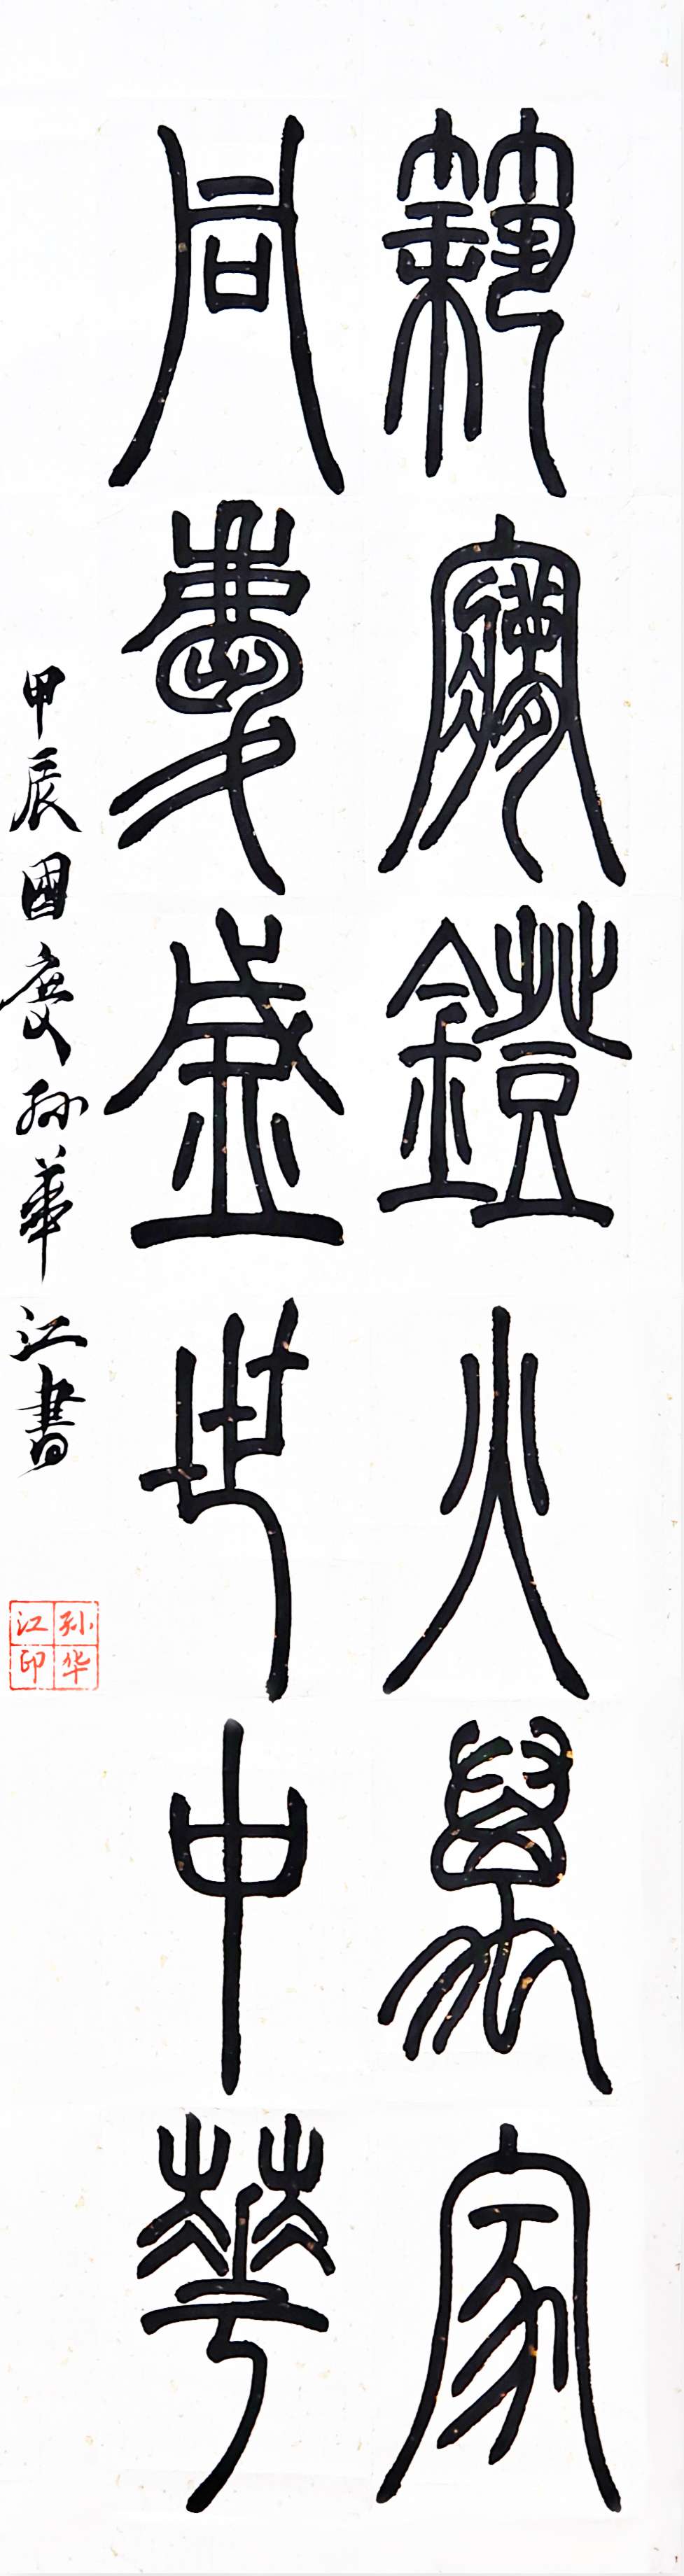 築夢鐙火萬家
同慶盛世中華
甲辰國慶孫華江書
孙华江印